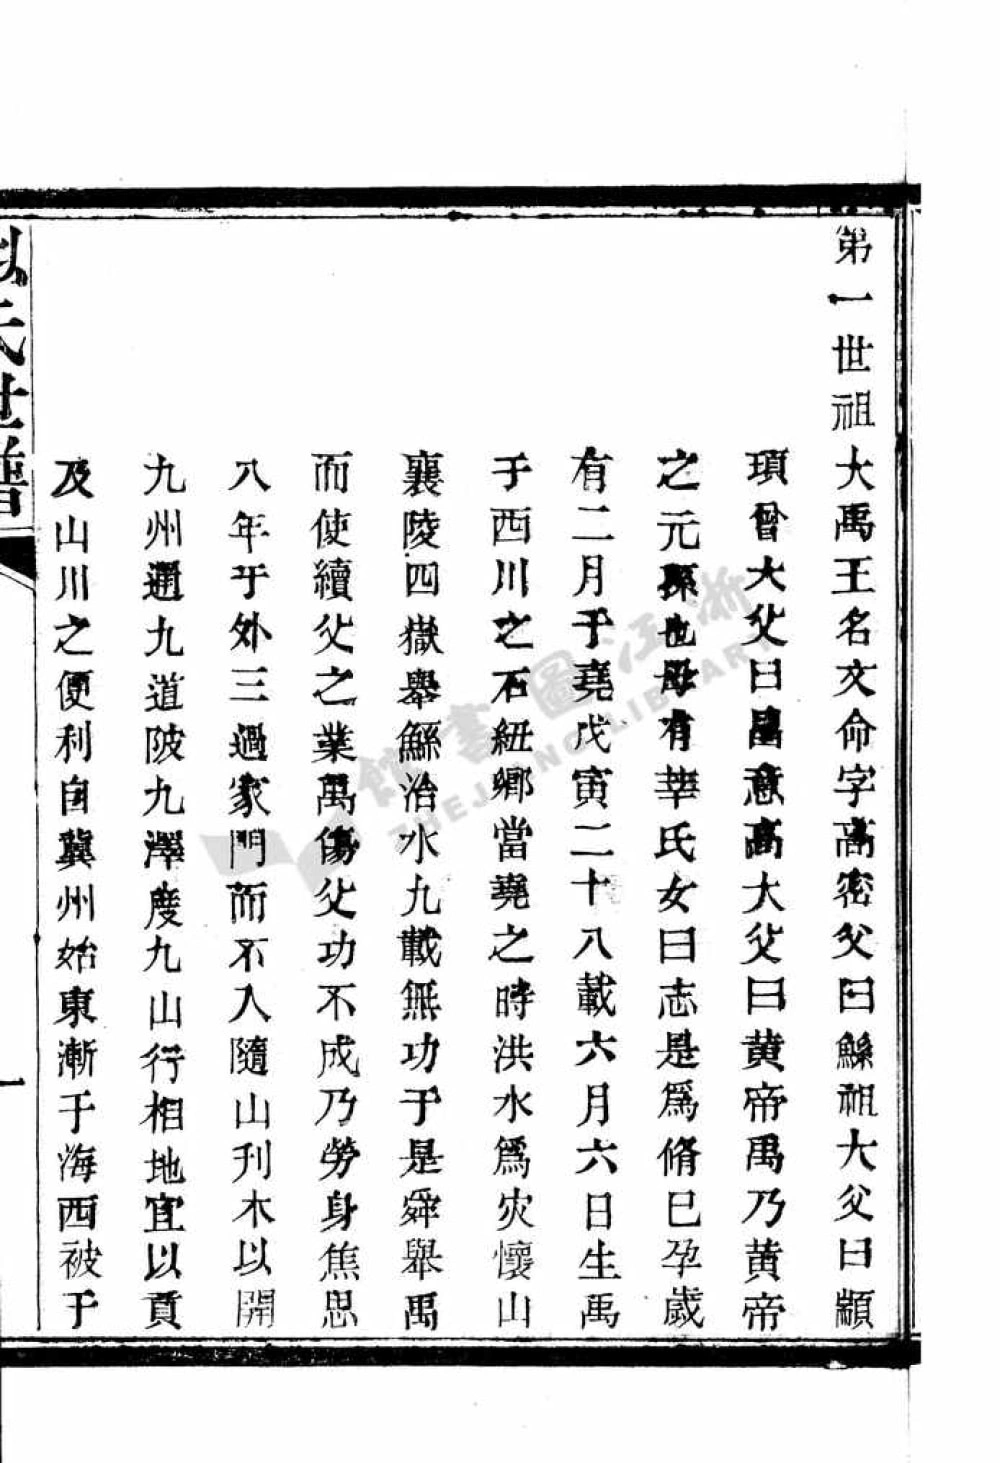 第一世祖大禹王名文命字高密父曰鯀祖大父曰顓
頊曾大父曰昌意高大父曰黃帝禹乃黃帝
之元孫也母有莘氏女曰志是爲脩巳孕歲
有二月于堯戊寅二十八載六月六日生禹
于西川之石紐鄉當堯之時洪水爲灾懷山
襄陵四嶽舉鯀治水九載無功于是舜舉禹
而使續父之業禹傷父功不成乃勞身焦思
八年于外三過家門而不入隨山刋木以開
九州通九道陂九澤度九山行相地宜以貢
及山川之便利自冀州始東漸于海西被于
姒氏世譜
一
浙江圖書館
ZHEJIANG LIBRARY